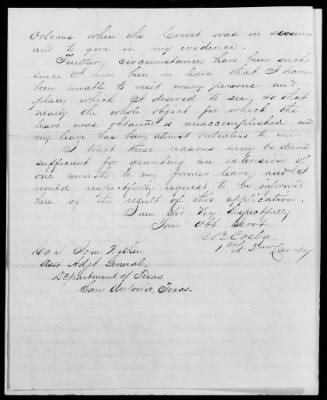 Orleans when the Court was in session
and to give in my evidence.
Further, circumstances have been such
since I have been on leave that I have
been unable to visit many persons and
places which I desired to see, so that
nearly the whole object for which the
leave was obtained is unaccomplished, and
my leave has been almost valueless to me.
I trust these reasons may be deemed
sufficient for granting an extension of
one month to my former leave, and I
would respectfully request to be informed
here of the result of this application.
I am Sir Very Respectfully
Your Obt Servt
1st Lt Cavalry
Asst Adjt General,
Department of Texas.
San Antonio, Texas.